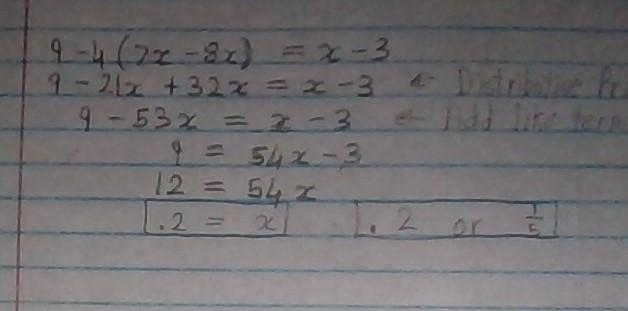 9 - 4(7x - 8x) = x - 3
9 - 21x + 32x = x - 3 ← Distributive Pr
9 - 53x = x - 3 ← Add like term
9 = 54x - 3
12 = 54x
.2 = x .2 or 1/5